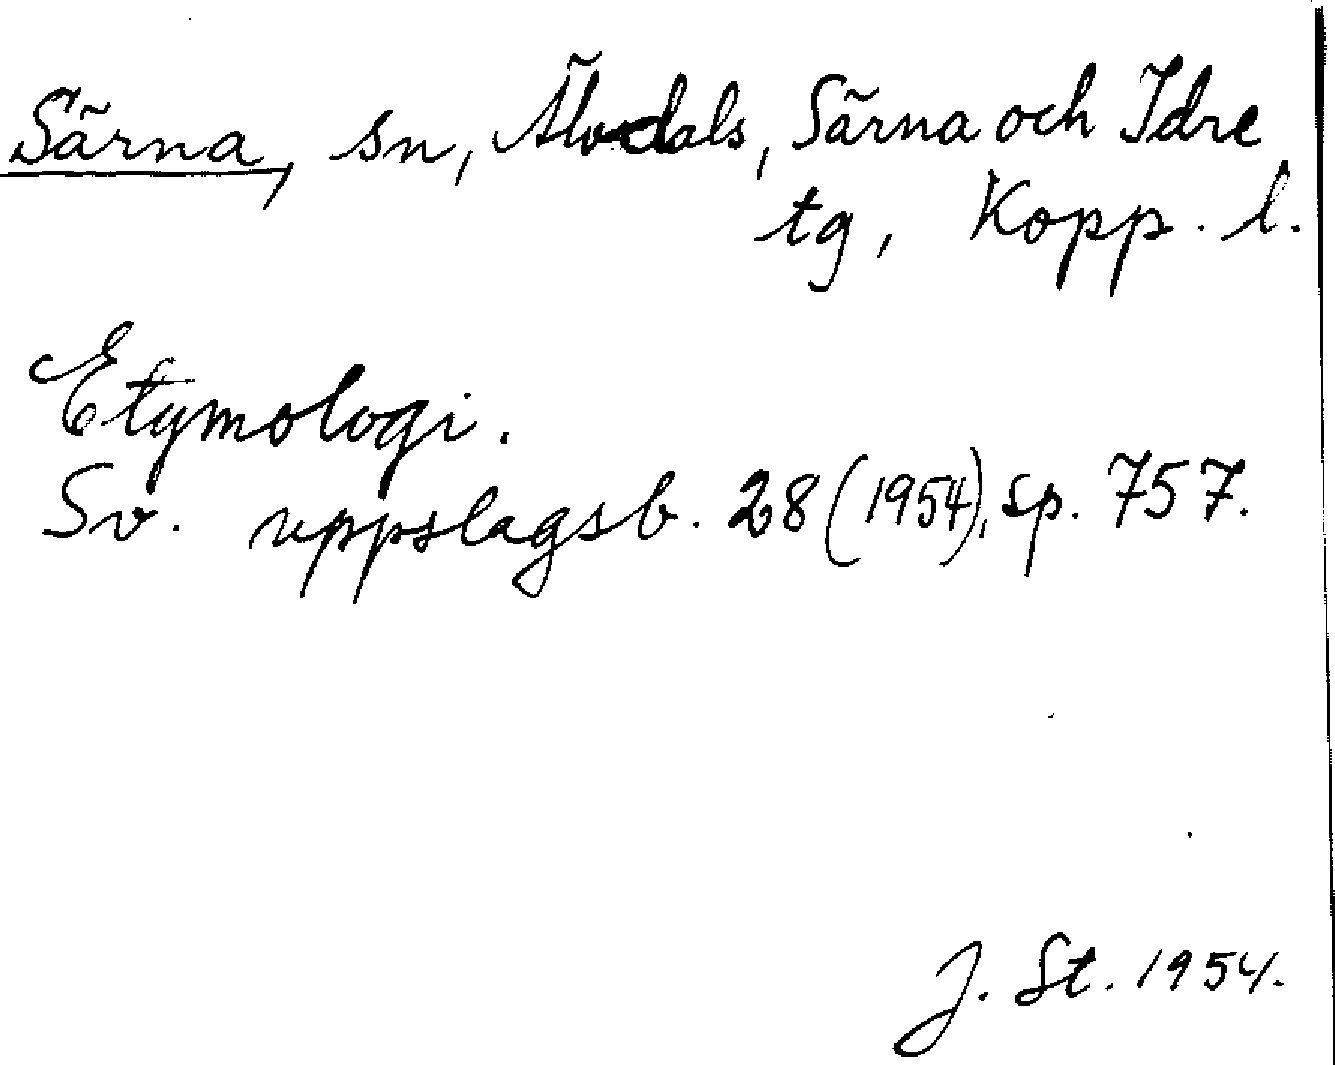 Särna, sn, Älvdals, Särna och Idre
tg, Kopp. l.
Etymologi.
Sv. uppslagsb. 28 (1954), sp. 757.
J. St. 1954.